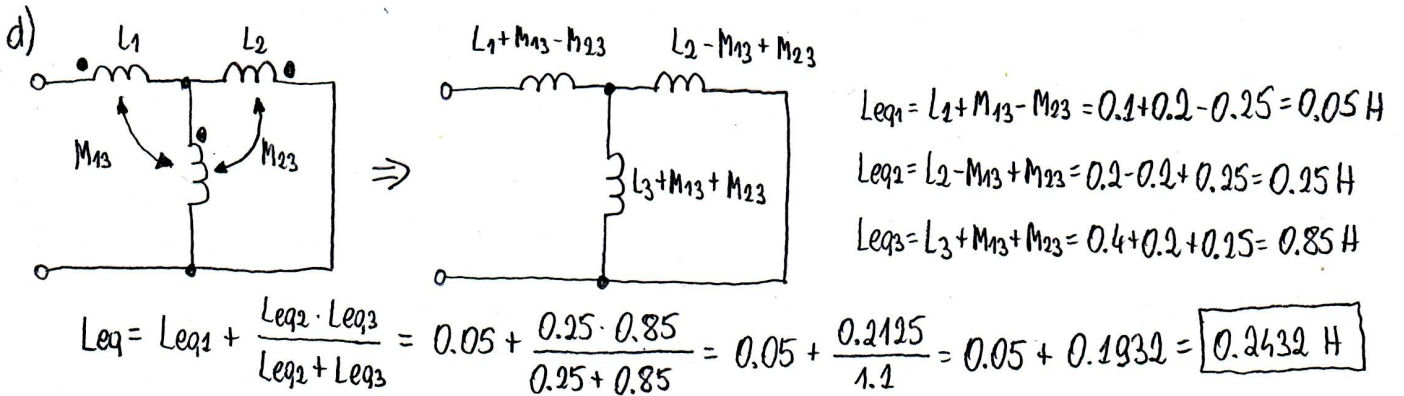 d)
L1 L2
M13 M23
⇒
L1+M13-M23 L2-M13+M23
L3+M13+M23
Leq1= L1+M13-M23 = 0.1+0.2-0.25= 0.05 H
Leq2= L2-M13+M23= 0.2-0.2+0.25= 0.25 H
Leq3= L3+M13+M23= 0.4+0.2+0.25= 0.85 H
Leq= Leq1 + (Leq2 · Leq3)/(Leq2 + Leq3) = 0.05 + (0.25 · 0.85)/(0.25 + 0.85) = 0.05 + 0.2125/1.1 = 0.05 + 0.1932 = 0.2432 H